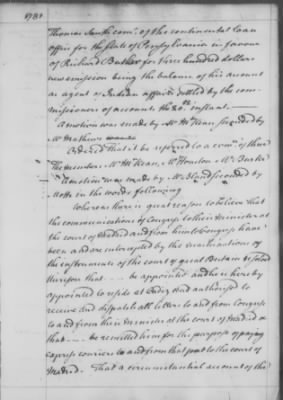 1781
Thomas Smith com.r of the continental loan
office for the state of Pensylvania in favour
of Richard Butler for three hundred dollars
new emission being the balance of his account
as agent of Indian affairs settled by the com-
missioners of accounts the 20.th instant.
A motion was made by Mr McKean seconded by
Mr Mathews
Ordered That it be referred to a com.ee of three
The members Mr McKean, Mr Houston Mr Burke
A motion was made by Mr Bland seconded by
in the words following
Whereas there is great reason to believe that
the communications of Congress to their minister at
the court of Madrid and from him to Congress have
been and are intercepted by the machinations of
the instruments of the court of great Britain resolved
therefore that -- be appointed and he is hereby
appointed to reside at Cadiz and authorised to
receive and dispatch all letters to and from Congress
to and from their minister at the court of Madrid &
that -- be remitted him for the purpose of paying
express couriers to and from that port to the court of
Madrid. That a circumstantial account of the